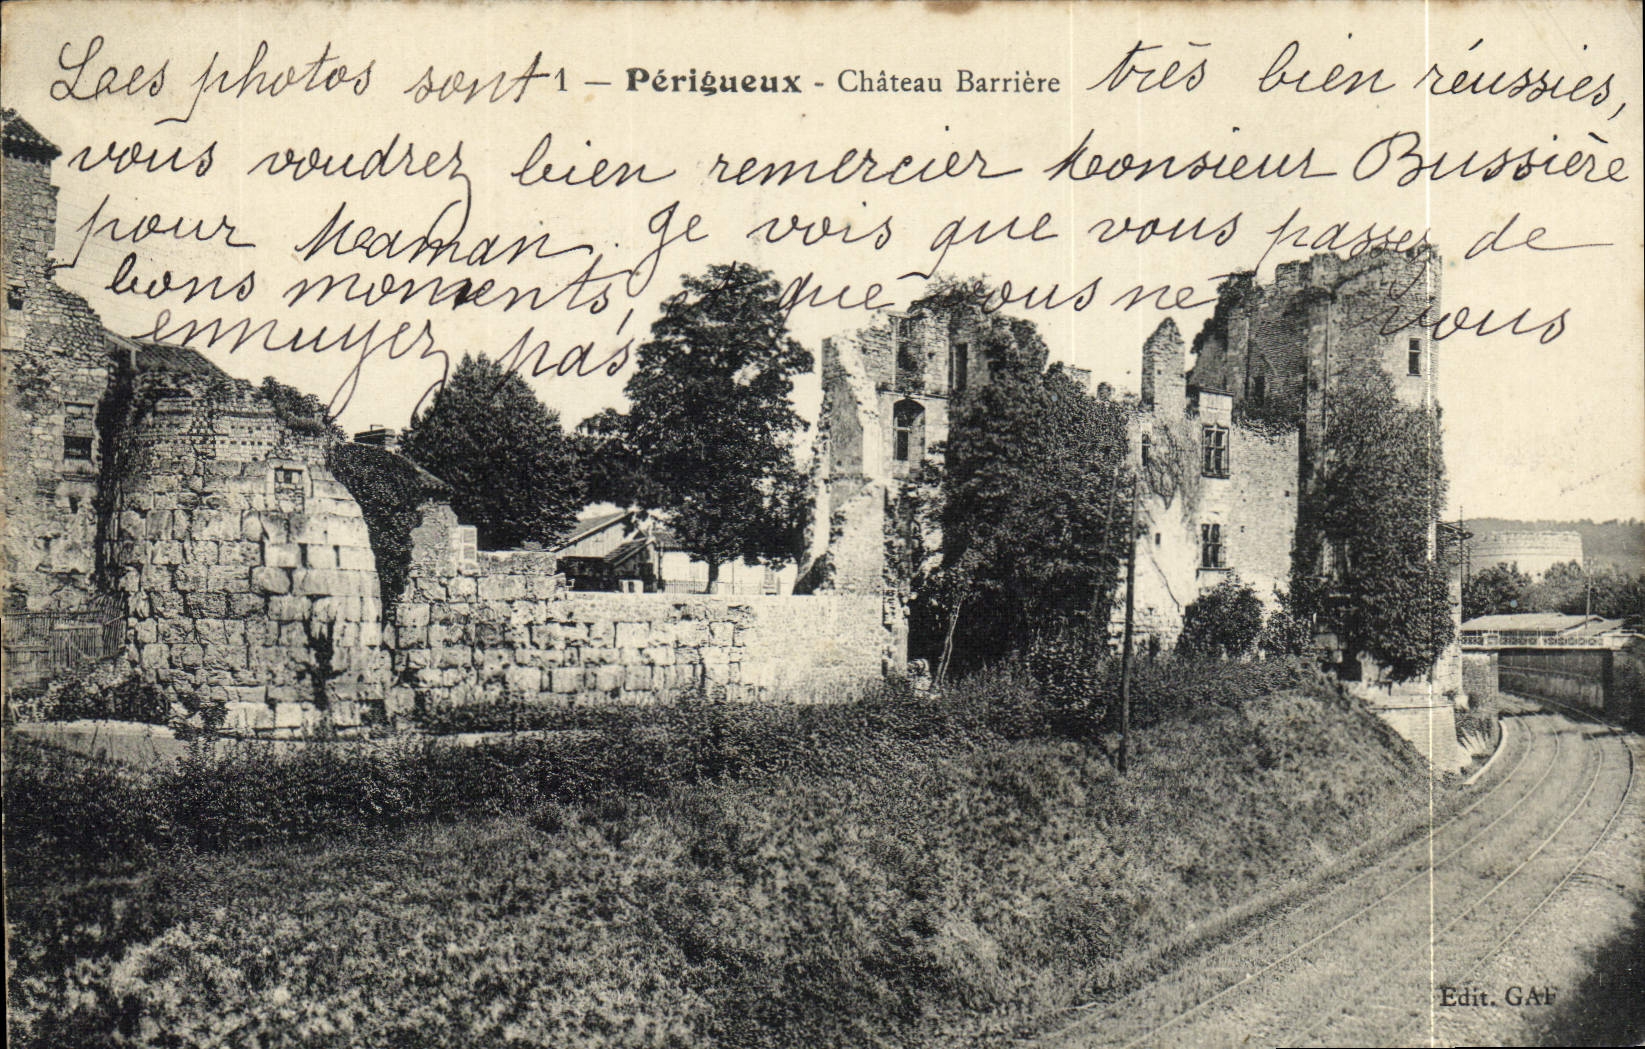 Les photos sont 1 — Périgueux - Château Barrière très bien réussies,
vous voudrez bien remercier Monsieur Bussière
pour Maman. Je vois que vous passez de
bons moments, et que vous ne vous
ennuyez pas
Edit. GAF